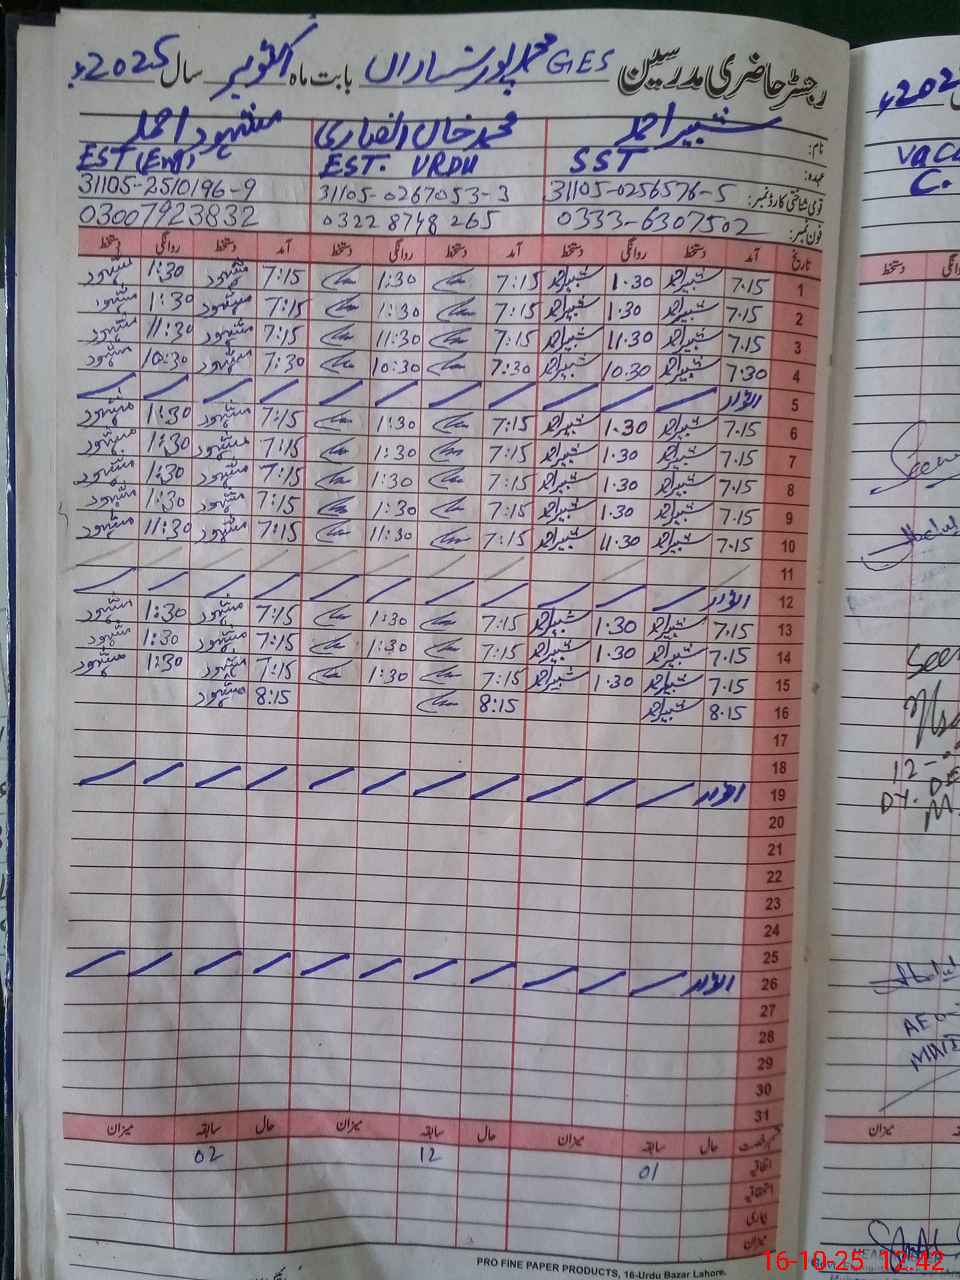 رجسٹر حاضری مدرسین GES محمد پور نساراں بابت ماہ اکتوبر سال 2025ء
نام: شبیر احمد محمد خان انصاری مشہود احمد
عہدہ: SST EST. URDU EST (Eng)
قومی شناختی کارڈ نمبر: 31105-0256576-5 31105-0267053-3 31105-2510196-9
فون نمبر: 0333-6307502 0322 8748 265 03007923832
تاریخ آمد دستخط روانگی دستخط آمد دستخط روانگی دستخط آمد دستخط روانگی دستخط
1 7.15 شبیر احمد 1.30 شبیر احمد 7:15 1:30 7:15 مشہود 1:30 مشہود
2 7.15 شبیر احمد 1.30 شبیر احمد 7:15 1:30 7:15 مشہود 1:30 مشہود
3 7.15 شبیر احمد 11.30 شبیر احمد 7:15 11:30 7:15 مشہود 11:30 مشہود
4 7.30 شبیر احمد 10.30 شبیر احمد 7:30 10:30 7:30 مشہود 10:30 مشہود
5 اتوار
6 7.15 شبیر احمد 1.30 شبیر احمد 7:15 1:30 7:15 مشہود 1:30 مشہود
7 7.15 شبیر احمد 1.30 شبیر احمد 7:15 1:30 7:15 مشہود 1:30 مشہود
8 7.15 شبیر احمد 1.30 شبیر احمد 7:15 1:30 7:15 مشہود 1:30 مشہود
9 7.15 شبیر احمد 1.30 شبیر احمد 7:15 1:30 7:15 مشہود 1:30 مشہود
10 7.15 شبیر احمد 11.30 شبیر احمد 7:15 11:30 7:15 مشہود 11:30 مشہود
11
12 اتوار
13 7.15 شبیر احمد 1.30 شبیر احمد 7:15 1:30 7:15 مشہود 1:30 مشہود
14 7.15 شبیر احمد 1.30 شبیر احمد 7:15 1:30 7:15 مشہود 1:30 مشہود
15 7.15 شبیر احمد 1.30 شبیر احمد 7:15 1:30 7:15 مشہود 1:30 مشہود
16 8.15 شبیر احمد 8:15 8:15 مشہود
17
18
19 اتوار
20
21
22
23
24
25
26 اتوار
27
28
29
30
31
حال سابقہ میزان حال سابقہ میزان حال سابقہ میزان
اتفاقیہ 01 12 02
استحقاقیہ
بیماری
میزان
PRO FINE PAPER PRODUCTS, 16-Urdu Bazar Lahore.
2025
دستخط
میزان
16-10-25 12:42